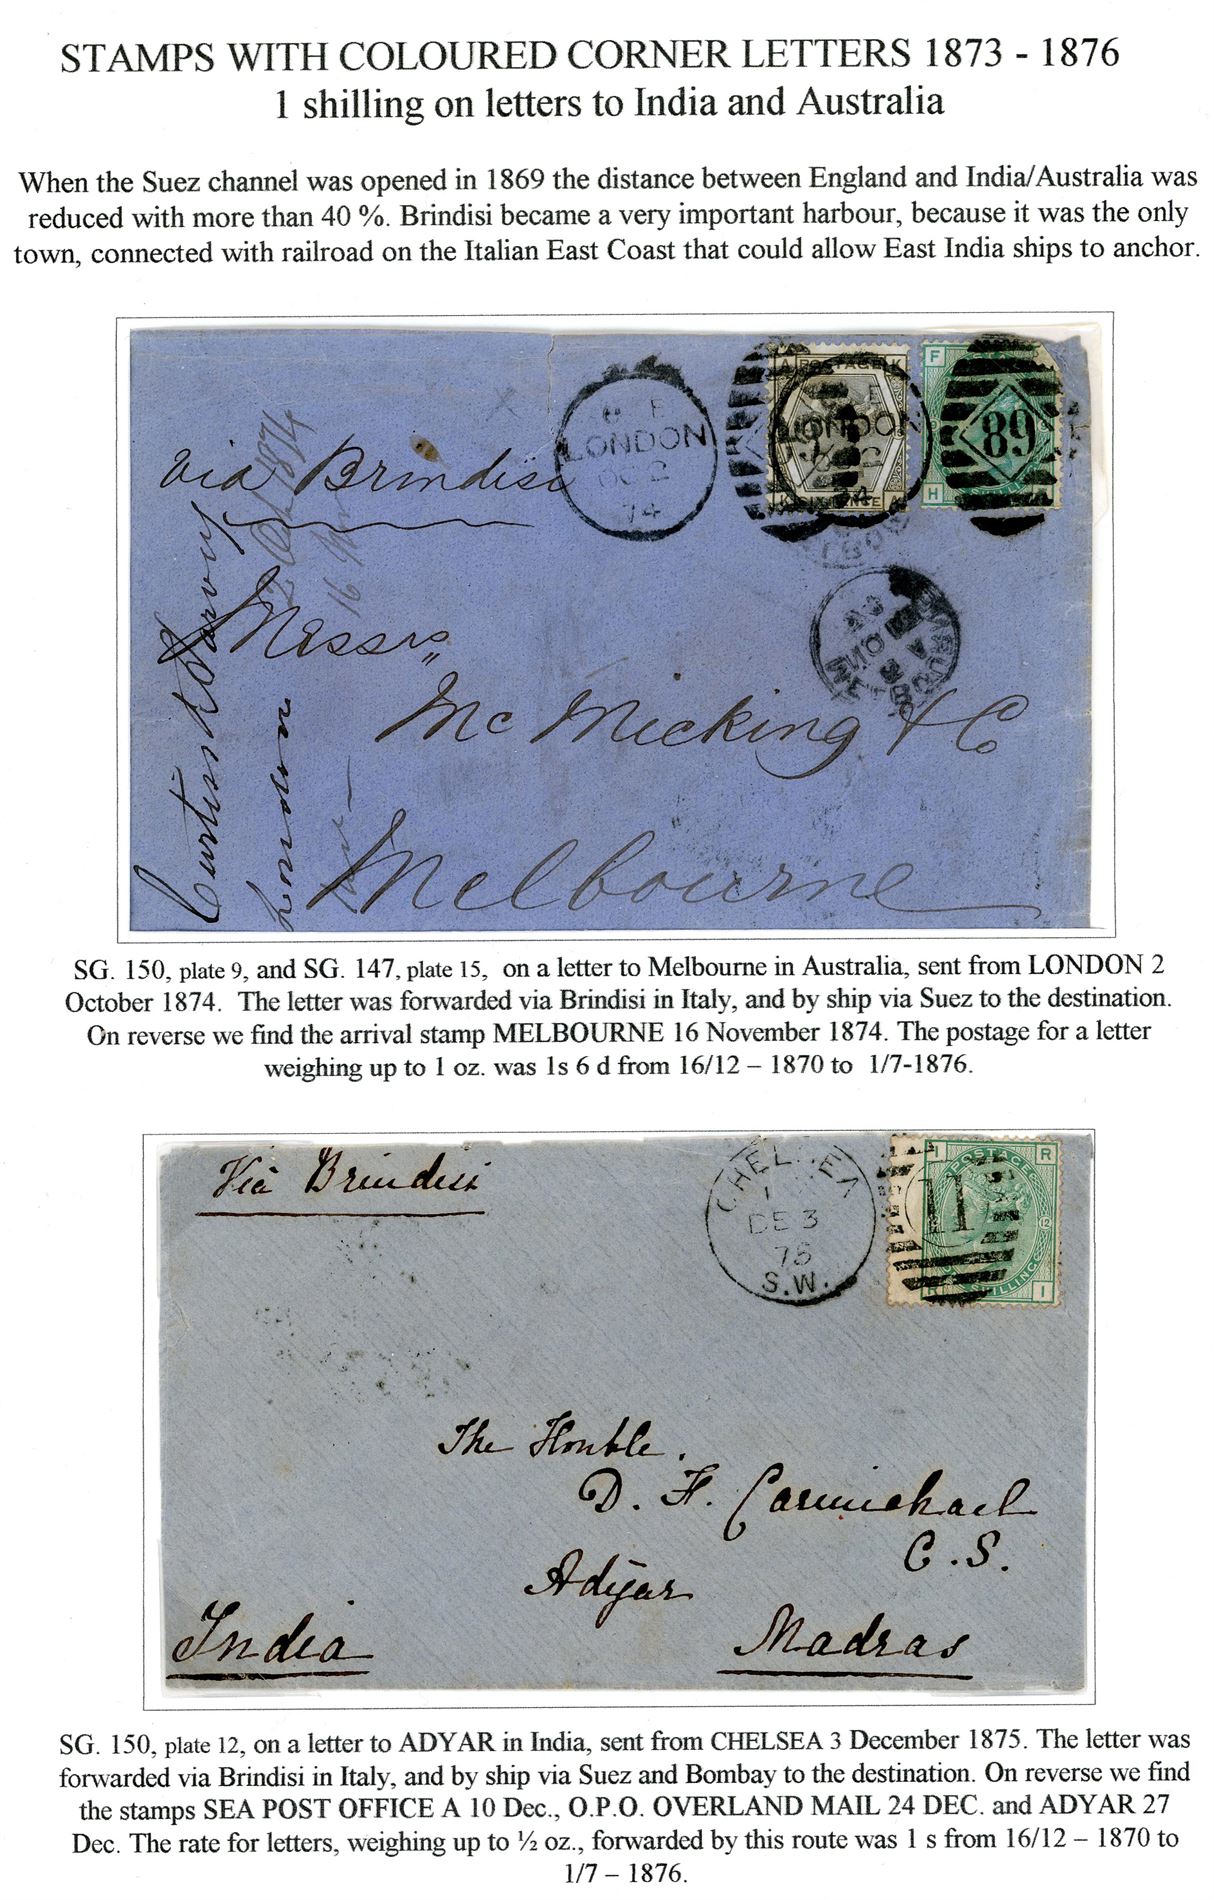 STAMPS WITH COLOURED CORNER LETTERS 1873 - 1876
1 shilling on letters to India and Australia
When the Suez channel was opened in 1869 the distance between England and India/Australia was
reduced with more than 40 %. Brindisi became a very important harbour, because it was the only
town, connected with railroad on the Italian East Coast that could allow East India ships to anchor.
via Brindisi
LONDON
OC 2
74
A POSTAGE K
LONDON
F
89
H
Messrs
Mc Micking & Co
Melbourne
Curtis & Harvey
London
2 Oct 1874
SG. 150, plate 9, and SG. 147, plate 15, on a letter to Melbourne in Australia, sent from LONDON 2
October 1874. The letter was forwarded via Brindisi in Italy, and by ship via Suez to the destination.
On reverse we find the arrival stamp MELBOURNE 16 November 1874. The postage for a letter
weighing up to 1 oz. was 1s 6 d from 16/12 – 1870 to 1/7-1876.
Via Brindisi
CHELSEA
DE 3
75
S.W.
I POSTAGE R
11
12
R SHILLING I
The Honble.
D. F. Carmichael
C.S.
Adyar
India Madras
SG. 150, plate 12, on a letter to ADYAR in India, sent from CHELSEA 3 December 1875. The letter was
forwarded via Brindisi in Italy, and by ship via Suez and Bombay to the destination. On reverse we find
the stamps SEA POST OFFICE A 10 Dec., O.P.O. OVERLAND MAIL 24 DEC. and ADYAR 27
Dec. The rate for letters, weighing up to ½ oz., forwarded by this route was 1 s from 16/12 – 1870 to
1/7 – 1876.